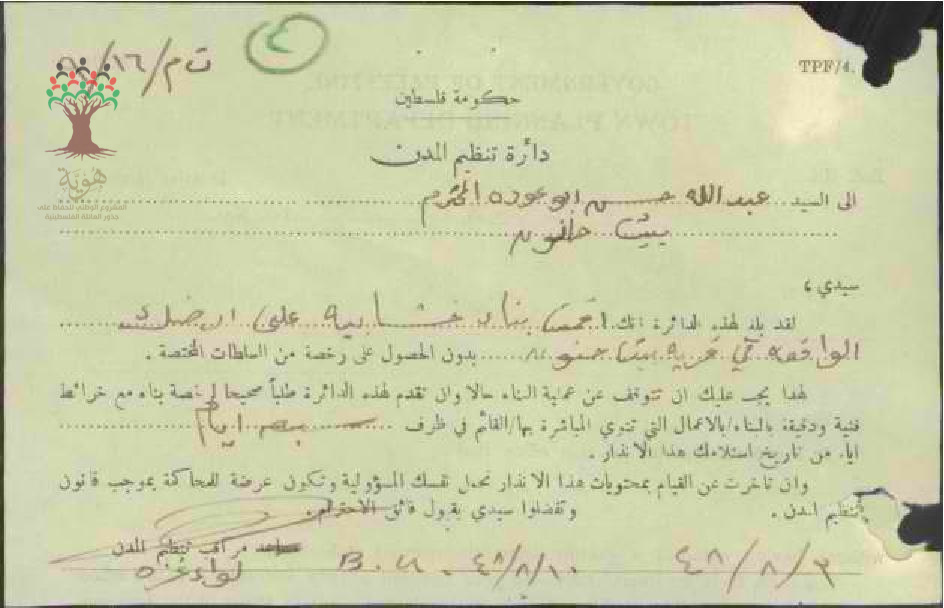 ت م/١٦/
٤
TPF/4.
حكومة فلسطين
دائرة تنظيم المدن
هوية
المشروع الوطني للحفاظ على
جذور العائلة الفلسطينية
الى السيد عبد الله حسن ابو عوده المحترم
بيت حانون
سيدي ،
لقد بلغ لهذه الدائرة انك اقمت بناء خشابيه على ارضك
الواقعه في قرية بيت حنون بدون الحصول على رخصة من السلطات المختصة .
لهذا يجب عليك ان تتوقف عن عملية البناء حالا وان تقدم لهذه الدائرة طلباً صحيحا لرخصة بناء مع خرائط
فنية ودقيقة بالبناء/بالاعمال التي تنوي المباشرة بها/القائم في ظرف سبعه ايام
اياء من تاريخ استلامك هذا الانذار .
وان تاخرت عن القيام بمحتويات هذا الانذار تحمل نفسك المسؤولية وتكون عرضة للمحاكمة بموجب قانون
تنظيم المدن . وتفضلوا سيدي بقبول فائق الاحترام .
مساعد مراقب تنظيم المدن
لواء غزه
٤٨/٨/١٠
٤٨/٨/٣